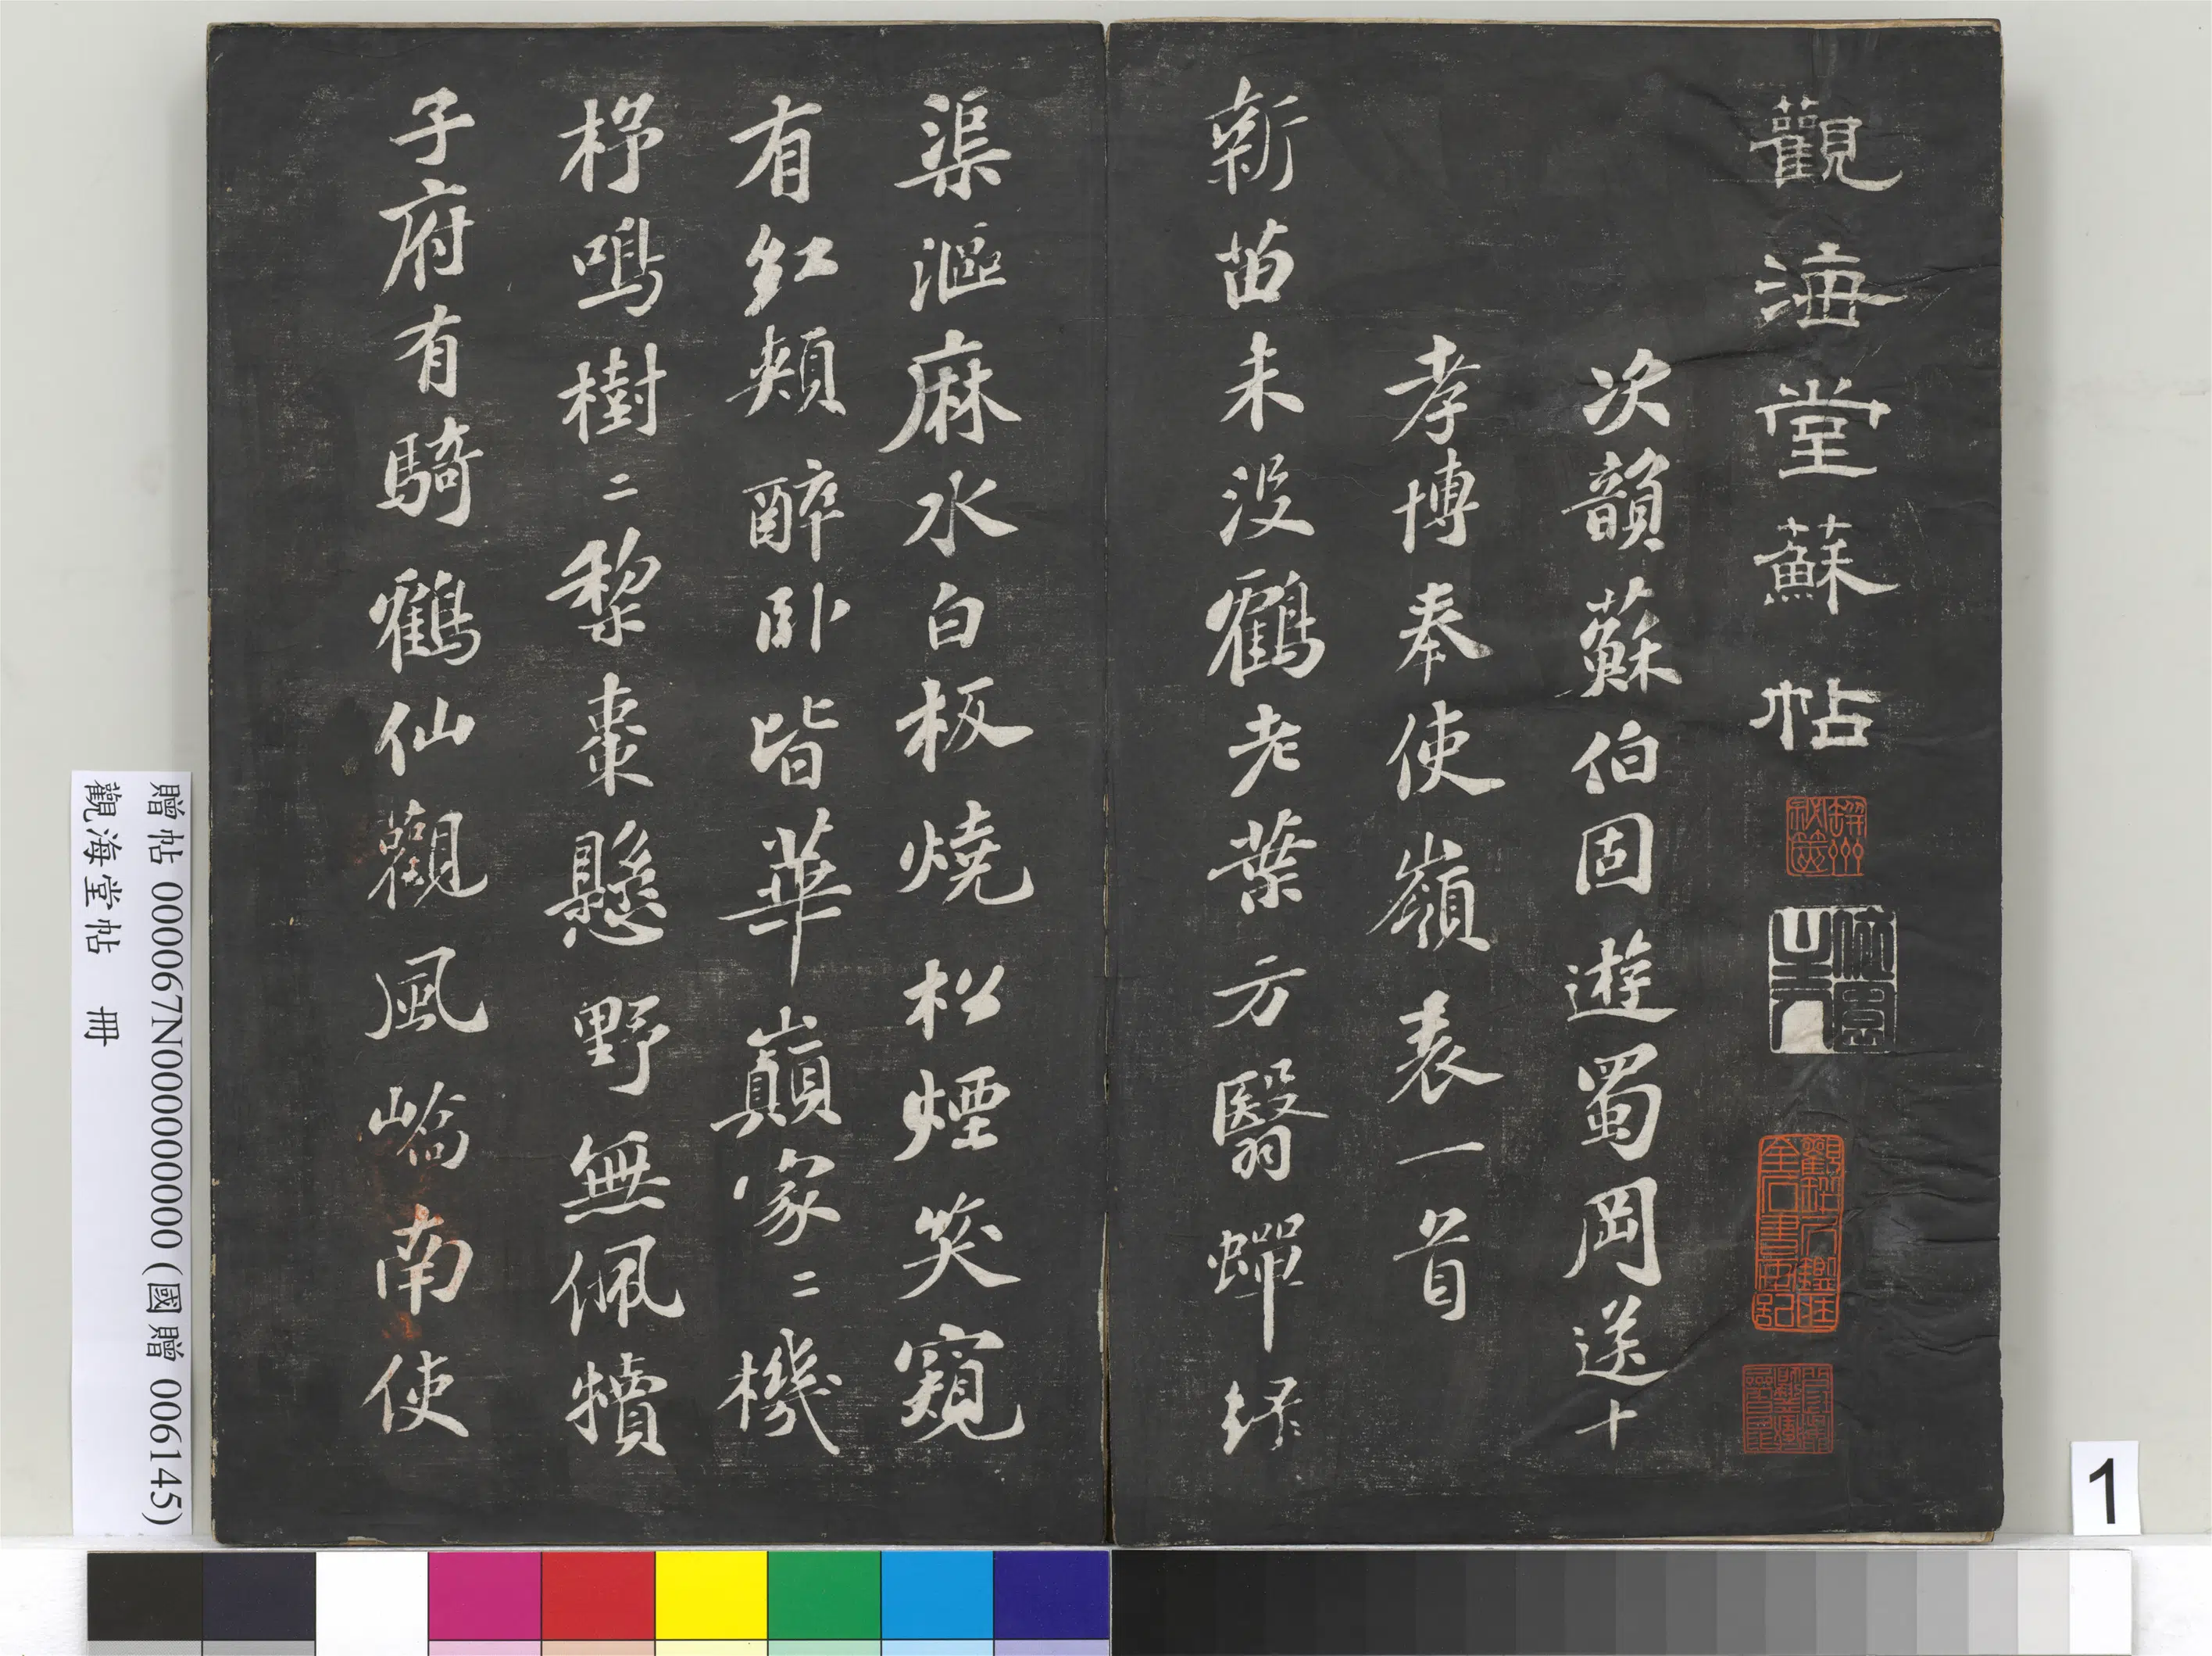 觀海堂蘇帖
次韻蘇伯固遊蜀岡送十
孝博奉使嶺表一首
新苗未沒鶴老葉方翳蟬綠
渠漚麻水白板燒松煙笑窺
有紅頰醉臥皆華巔家二機
杼鳴樹二黎棗懸野無佩犢
子府有騎鶴仙觀風嶠南使
贈帖 0000067N000000000 (國贈 006145)
觀海堂帖 冊
1